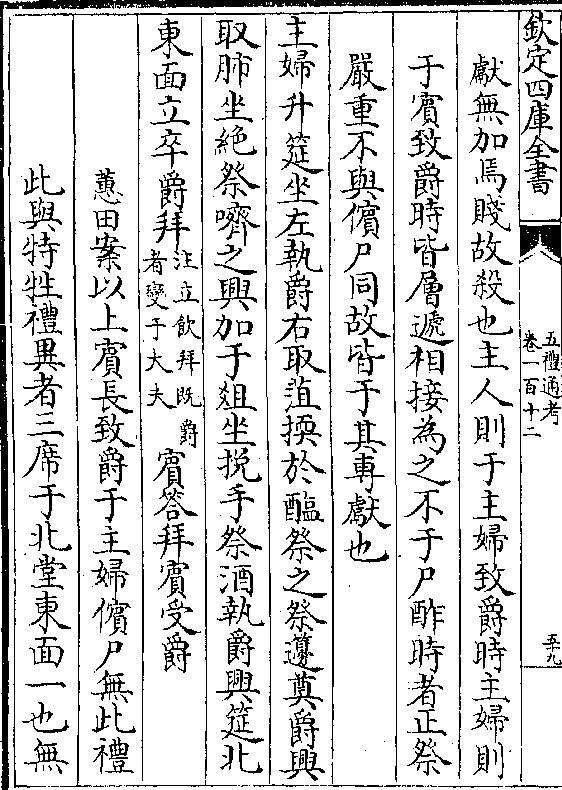 欽定四庫全書
五禮通考
卷一百十二
五十九
獻無加焉賤故殺也主人則于主婦致爵時主婦則
于賓致爵時皆層遞相接為之不于尸酢時者正祭
嚴重不與儐尸同故皆于其專獻也
主婦升筵坐左執爵右取菹擩於醢祭之祭籩奠爵興
取肺坐絶祭嚌之興加于俎坐挩手祭酒執爵興筵北
東面立卒爵拜注立飲拜既爵者變于大夫賓答拜賓受爵
蕙田案以上賓長致爵于主婦儐尸無此禮
此與特牲禮異者三席于北堂東面一也無